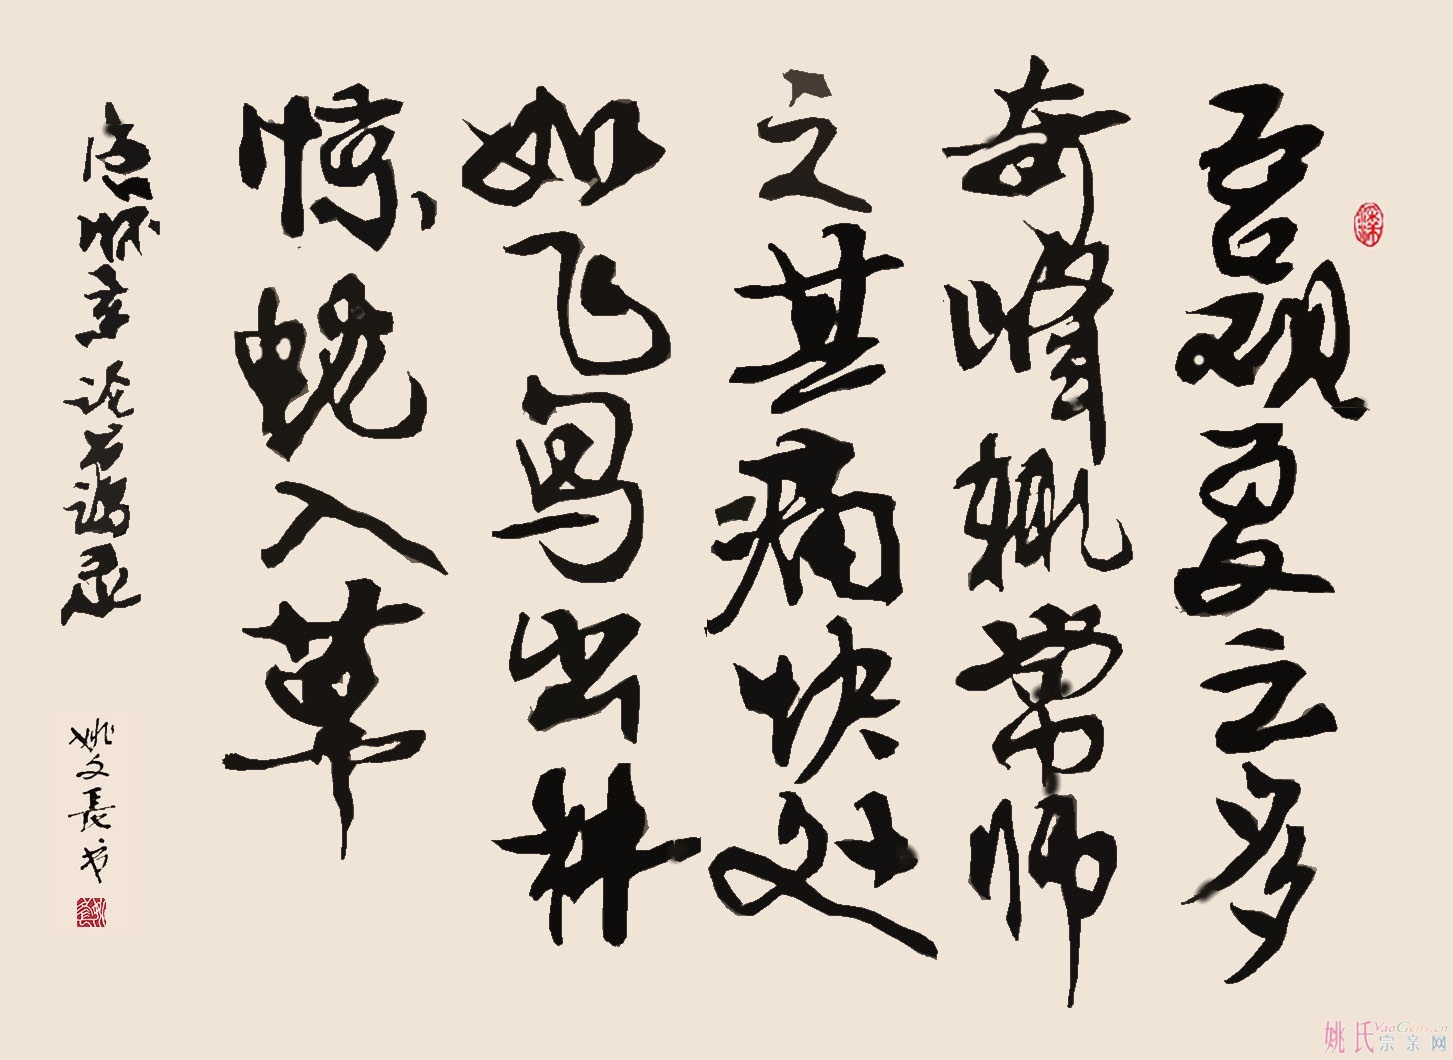 吾观夏云多
奇峰辄常师
之其痛快处
如飞鸟出林
惊蛇入草
唐怀素论书语录
姚文長书
姚氏
YaoGens.cn
宗亲网